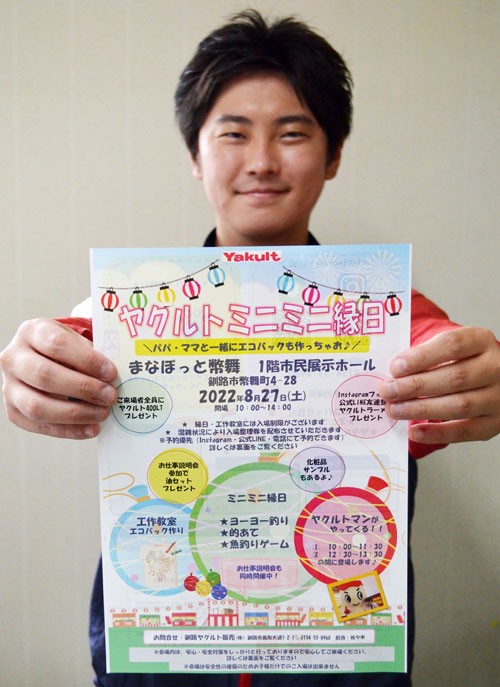 Yakult
ヤクルトミニミニ縁日
＼パパ・ママと一緒にエコバックも作っちゃお♪／
まなぼっと幣舞　1階市民展示ホール
釧路市幣舞町4-28
2022年8月27日(土)
開場　10：00～14：00
ご来場者全員に
ヤクルト400LT
プレゼント
Instagramフ
公式LINE友達登
ヤクルトラーメ
プレゼント
★　縁日・工作教室には入場制限がございます
★　混雑状況により入場整理券を配布させていただきます
※予約優先（Instagram・公式LINE・電話にて予約できます）
詳しくは裏面をご覧ください
お仕事説明会
参加で
油セット
プレゼント
化粧品
サンプル
もあるよ♪
工作教室
エコバック作り
ミニミニ縁日
★ヨーヨー釣り
★的あて
★魚釣りゲーム
お仕事説明会も
同時開催中！
ヤクルトマンが
やってくる！！
① 10：00～11：30
② 12：30～13：30
の間に登場します♪
お問合せ：釧路ヤクルト販売(株) 釧路市鳥取大通
担当：佐々木
※会場内は、安心・安全対策をしっかりと行っておりますので安心してご来場ください。
詳しくは裏面をご覧ください
※会場は安全性の確保のためお子様だけでのご入場は出来ません